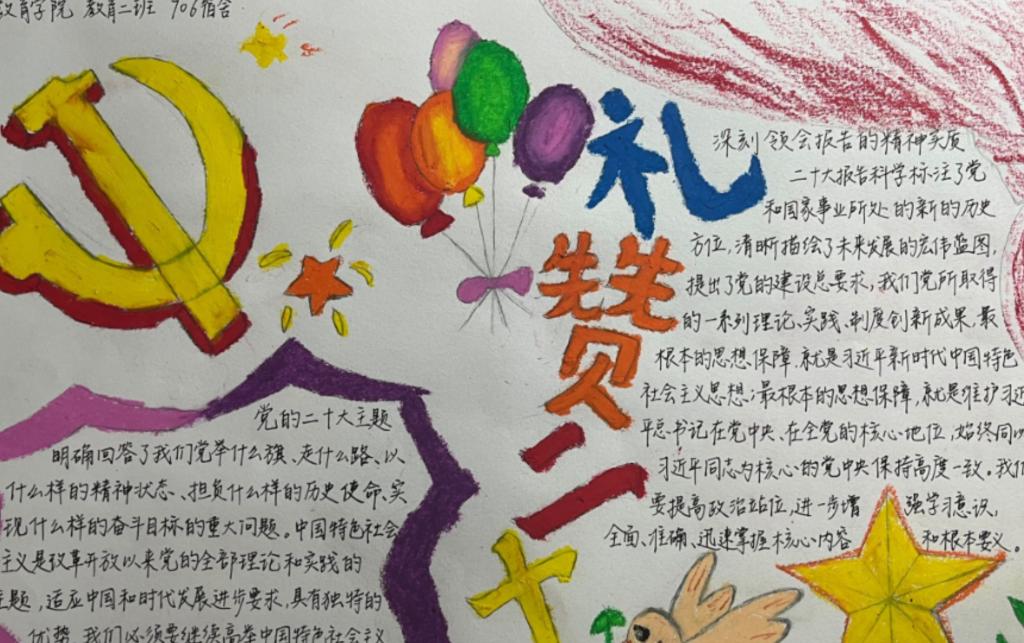 教育学院 教育二班 906宿舍
礼
赞
二
十
深刻领会报告的精神实质
二十大报告科学标注了党
和国家事业所处的新的历史
方位，清晰描绘了未来发展的宏伟蓝图，
提出了党的建设总要求，我们党所取得
的一系列理论、实践、制度创新成果，最
根本的思想保障，就是习近平新时代中国特色
社会主义思想；最根本的思想保障，就是维护习近
平总书记在党中央、在全党的核心地位，始终同以
习近平同志为核心的党中央保持高度一致。我们
要提高政治站位，进一步增强学习意识，
全面、准确、迅速掌握核心内容和根本要义。
党的二十大主题
明确回答了我们党举什么旗、走什么路、以
什么样的精神状态、担负什么样的历史使命、实
现什么样的奋斗目标的重大问题。中国特色社会
主义是改革开放以来党的全部理论和实践的
主题，适应中国和时代发展进步要求，具有独特的
优势，我们必须要继续高举中国特色社会主义